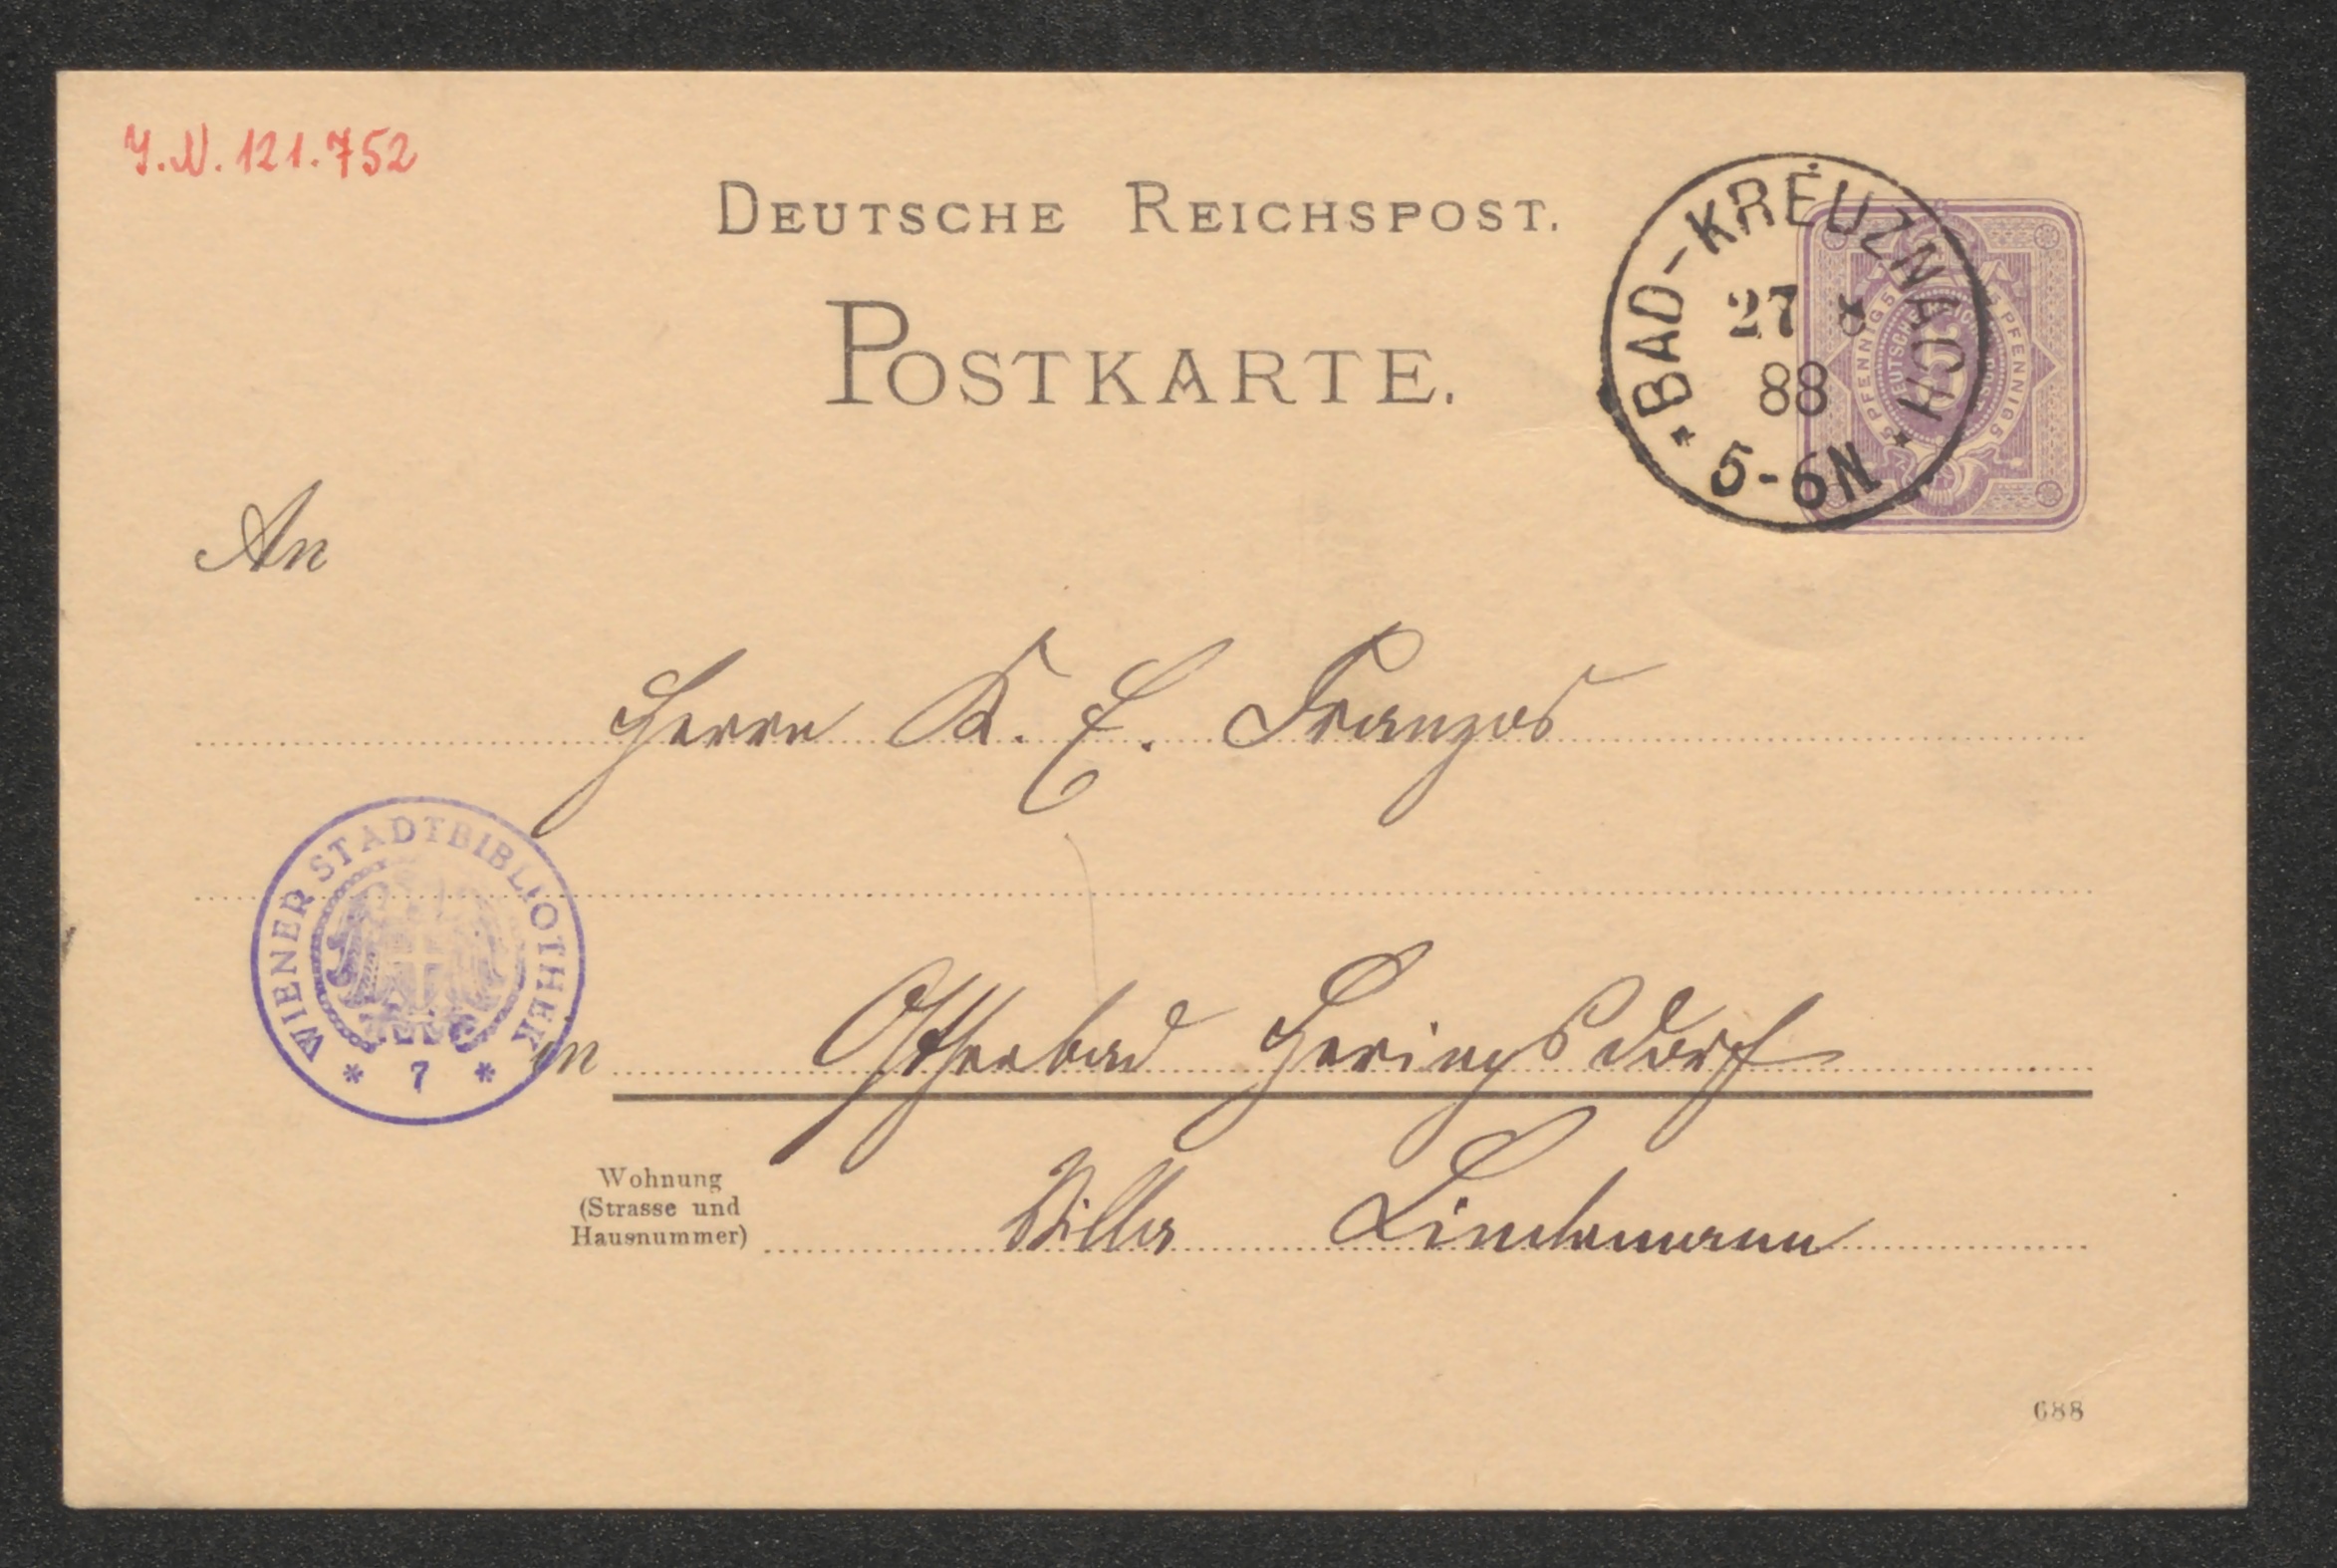 J.N. 121.752
DEUTSCHE REICHSPOST.
POSTKARTE.
BAD-KREUZNACH
27 8
88
* 5-6N *
5 PFENNIG 5 PFENNIG 5
An
Herrn K. E. Franzos
WIENER STADTBIBLIOTHEK
* 7 *
in Ostseebad Heringsdorf
Wohnung
(Strasse und
Hausnummer)
Villa Lindemann
688